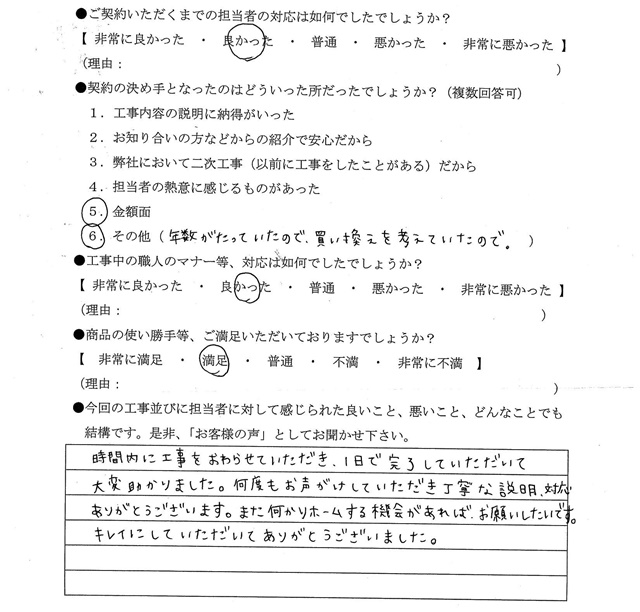 ●ご契約いただくまでの担当者の対応は如何でしたでしょうか？
【 非常に良かった ・ 良かった ・ 普通 ・ 悪かった ・ 非常に悪かった 】
（理由： ）
●契約の決め手となったのはどういった所だったでしょうか？（複数回答可）
１．工事内容の説明に納得がいった
２．お知り合いの方などからの紹介で安心だから
３．弊社において二次工事（以前に工事をしたことがある）だから
４．担当者の熱意に感じるものがあった
５．金額面
６．その他（年数がたっていたので、買い換えを考えていたので。 ）
●工事中の職人のマナー等、対応は如何でしたでしょうか？
【 非常に良かった ・ 良かった ・ 普通 ・ 悪かった ・ 非常に悪かった 】
（理由： ）
●商品の使い勝手等、ご満足いただいておりますでしょうか？
【 非常に満足 ・ 満足 ・ 普通 ・ 不満 ・ 非常に不満 】
（理由： ）
●今回の工事並びに担当者に対して感じられた良いこと、悪いこと、どんなことでも
結構です。是非、「お客様の声」としてお聞かせ下さい。
時間内に工事をおわらせていただき、1日で完了していただいて
大変助かりました。何度もお声がけしていただき丁寧な説明、対応
ありがとうございます。また何かリホームする機会があれば、お願いしたいです。
キレイにしていただいてありがとうございました。